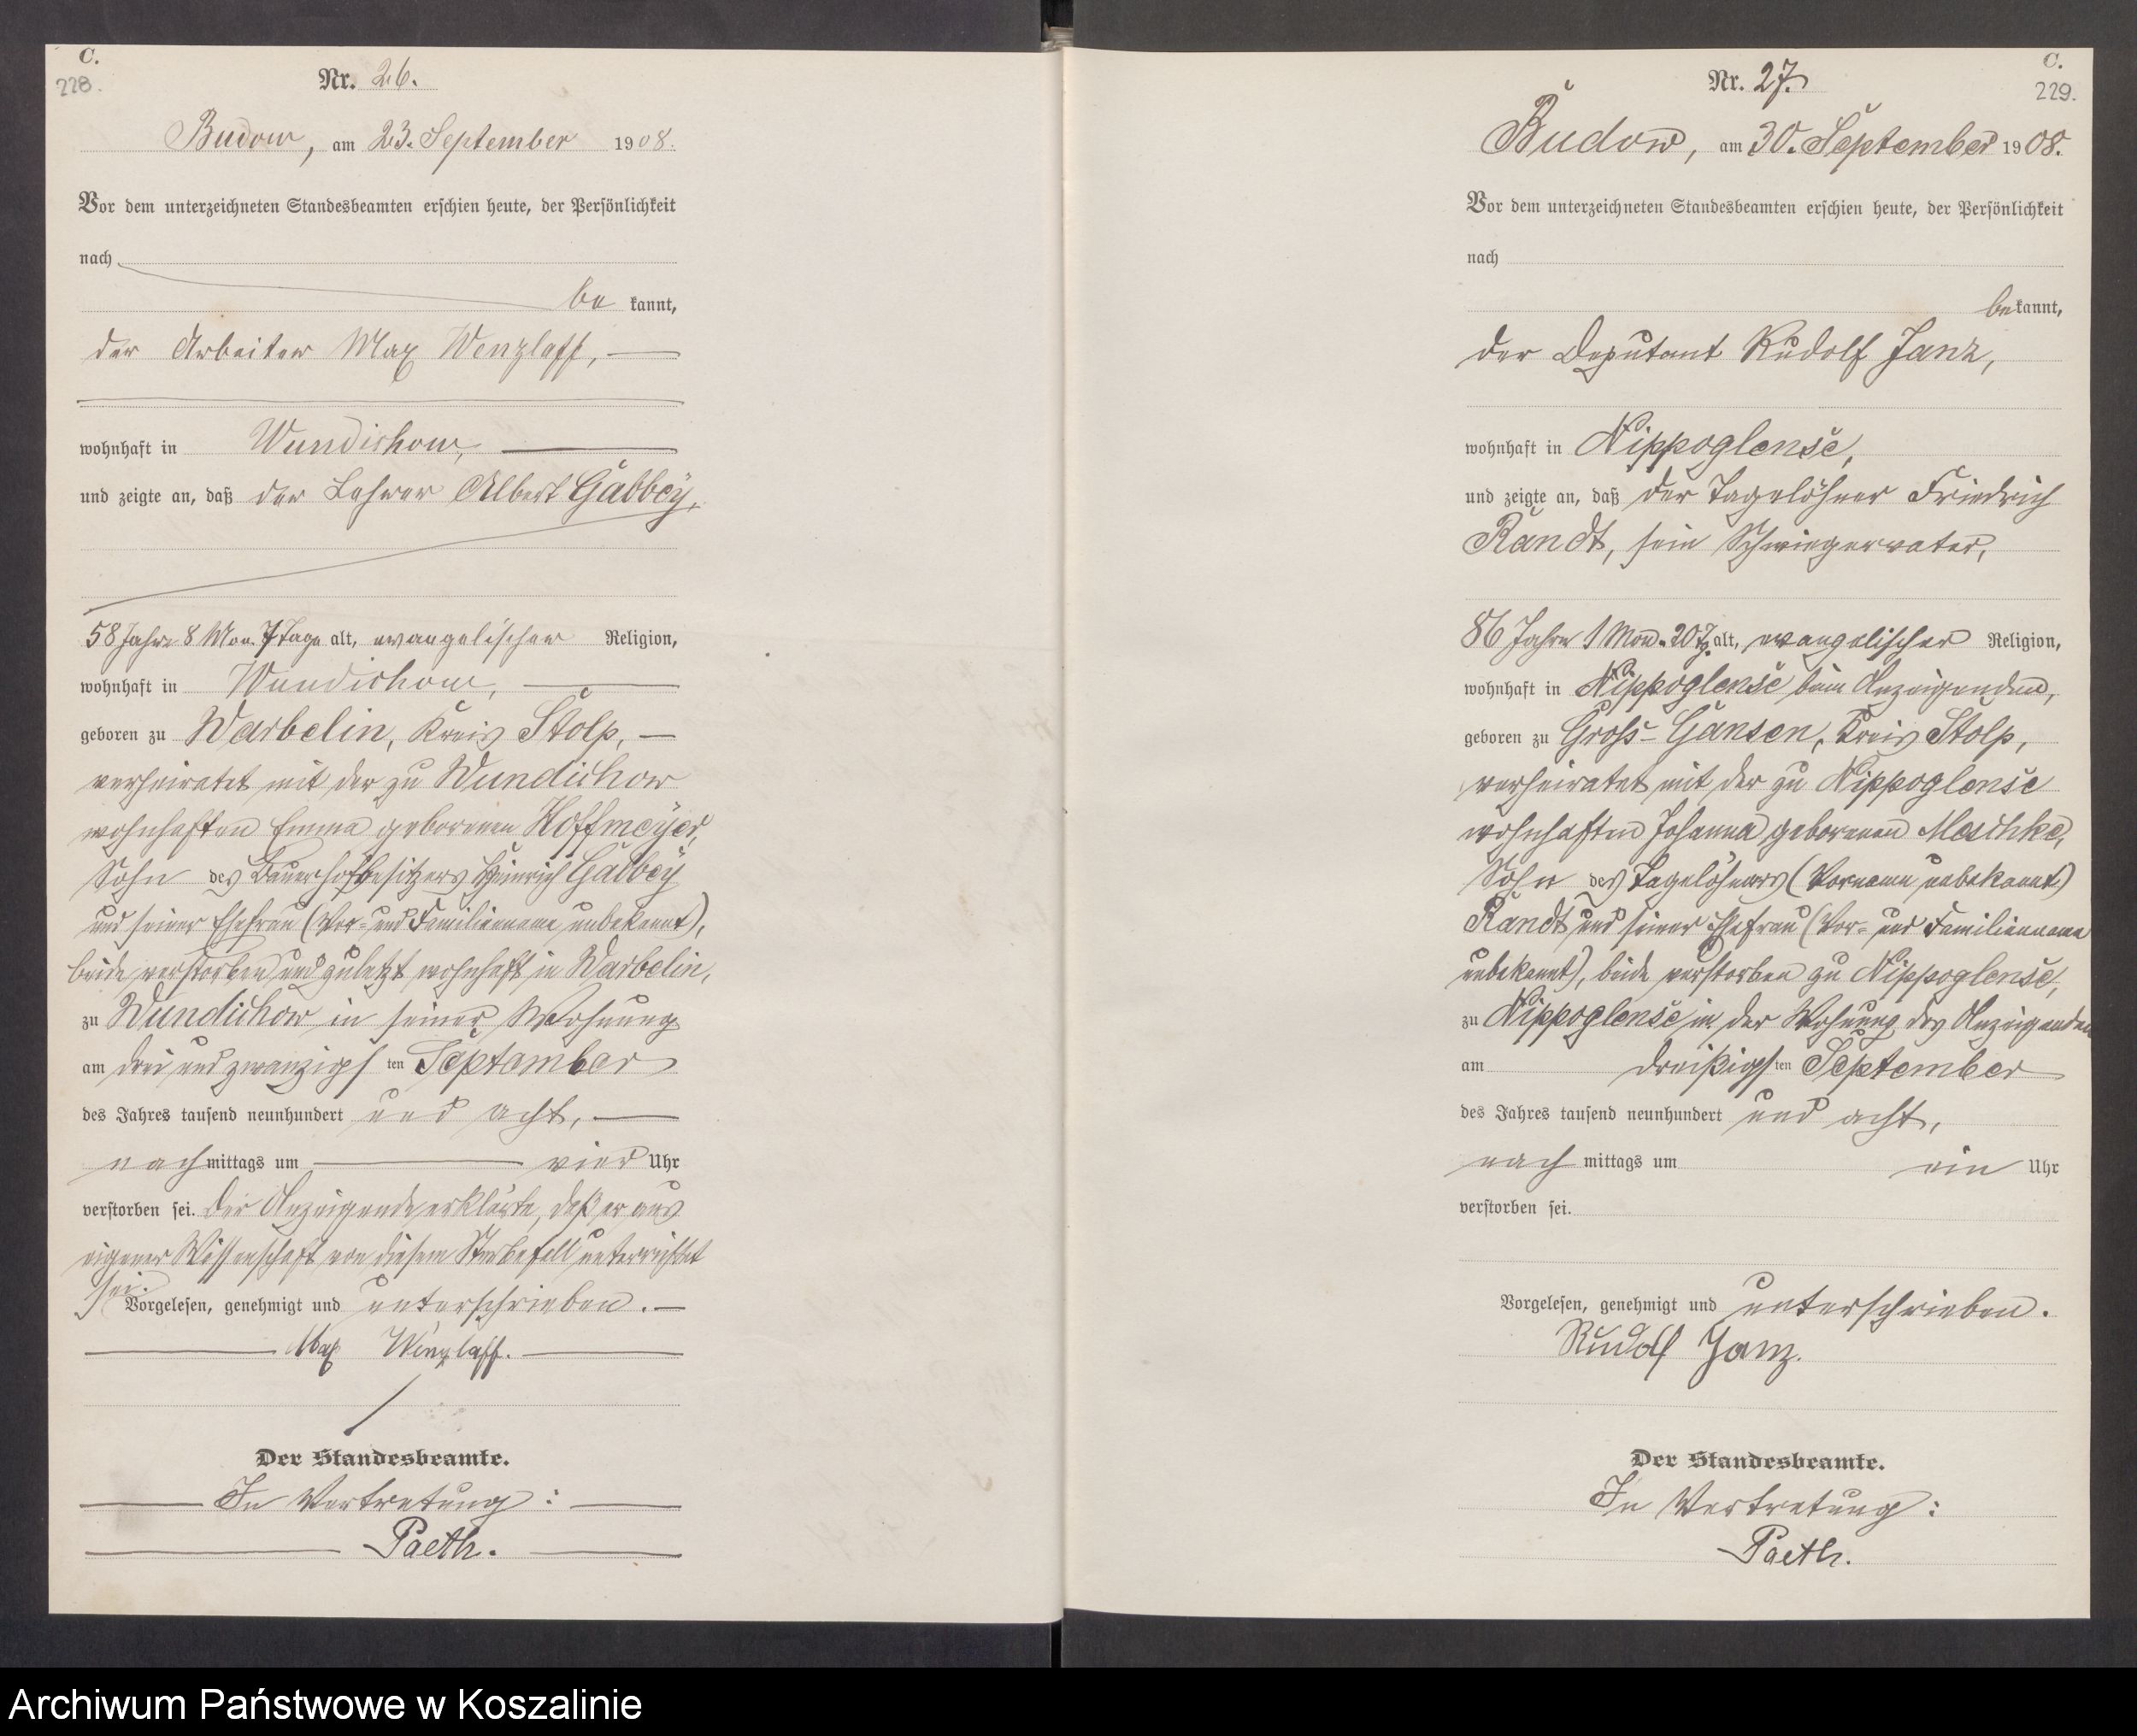 C.
228.
Nr. 26.
Budow, am 23. September 1908.
Vor dem unterzeichneten Standesbeamten erschien heute, der Persönlichkeit
nach
be kannt,
der Arbeiter Max Wenzlaff,
wohnhaft in Wundichow,
und zeigte an, daß der Lehrer Albert Gabbey,
58 Jahre 8 Mon. 7 Tage alt, evangelischer Religion,
wohnhaft in Wundichow,
geboren zu Warbelin, Kreis Stolp,
verheiratet mit der zu Wundichow
wohnhaften Emma geborenen Hoffmeyer,
Sohn des Bauerhofbesitzers Heinrich Gabbey
und seiner Ehefrau (Vor- und Familienname unbekannt),
beide verstorben und zuletzt wohnhaft in Warbelin,
zu Wundichow in seiner Wohnung
am drei und zwanzigs ten September
des Jahres tausend neunhundert und acht,
nach mittags um vier Uhr
verstorben sei. Der Anzeigende erklärte, daß er aus
eigener Wissenschaft von diesem Sterbefall unterrichtet
sei.
Vorgelesen, genehmigt und unterschrieben.
Max Wenzlaff.
Der Standesbeamte.
In Vertretung:
Paeth.
C.
229.
Nr. 27.
Budow, am 30. September 1908.
Vor dem unterzeichneten Standesbeamten erschien heute, der Persönlichkeit
nach
bekannt,
der Deputant Rudolf Janz,
wohnhaft in Nippoglense,
und zeigte an, daß der Tagelöhner Friedrich
Randt, sein Schwiegervater,
86 Jahre 1 Mon. 20 Tg. alt, evangelischer Religion,
wohnhaft in Nippoglense beim Anzeigenden,
geboren zu Gross-Gansen, Kreis Stolp,
verheiratet mit der zu Nippoglense
wohnhaften Johanna geborenen Meschke,
Sohn des Tagelöhners (Vorname unbekannt)
Randt und seiner Ehefrau (Vor- und Familienname
unbekannt), beide verstorben zu Nippoglense,
zu Nippoglense in der Wohnung des Anzeigenden
am dreißigs ten September
des Jahres tausend neunhundert und acht,
nach mittags um ein Uhr
verstorben sei.
Vorgelesen, genehmigt und unterschrieben.
Rudolf Janz.
Der Standesbeamte.
In Vertretung:
Paeth.
Archiwum Państwowe w Koszalinie